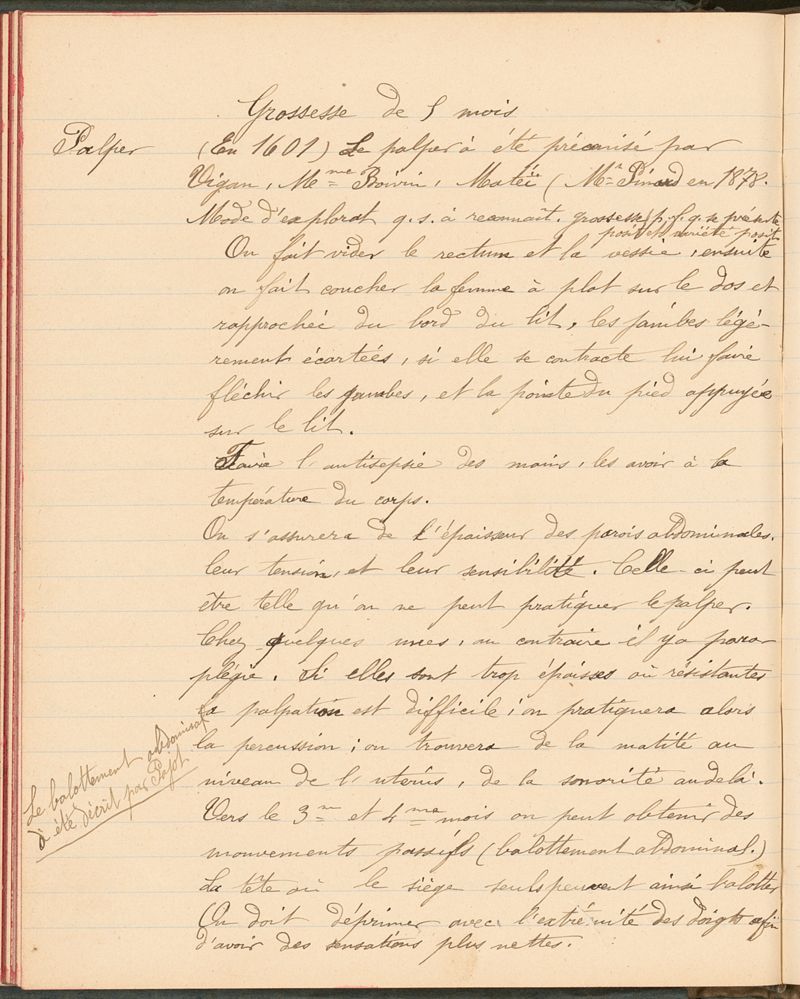 Grossesse de 5 mois
Palper
(En 1601) Le palper à été précanisé par
Vigan, Mme Boivin, Mateï (Mr Pinard en 1878.
Mode d'explorat q. s. à reconnaît. grossesse, p. f. q. se présente
posit et variété posit
On fait vider le rectum et la vessie, ensuite
on fait coucher la femme à plat sur le dos et
rapprochée du bord du lit, les jambes légé-
rement écartées, si elle se contracte lui faire
fléchir les jambes, et la pointe du pied appuyée
sur le lit.
Faire l'antisepsie des mains, les avoir à la
température du corps.
On s'assurera de l'épaisseur des parois abdominales.
leur tension, et leur sensibilité. Celle-ci peut
être telle qu'on ne peut pratiquer le palper.
Chez quelques unes, au contraire il y a para-
plégie. Si elles sont trop épaisses où résistantes
la palpation est difficile; on pratiquera alors
la percussion; on trouvera de la matité au
niveau de l'utérus, de la sonorité au delà.
Vers le 3me et 4me mois on peut obtenir des
mouvements passifs (balottement abdominal.)
La tête où le siège seuls peuvent ainsi balotter
On doit déprimer avec l'extrémité des doigts afin
d'avoir des sensations plus nettes.
Le balottement abdominal
à été décrit par Pajot